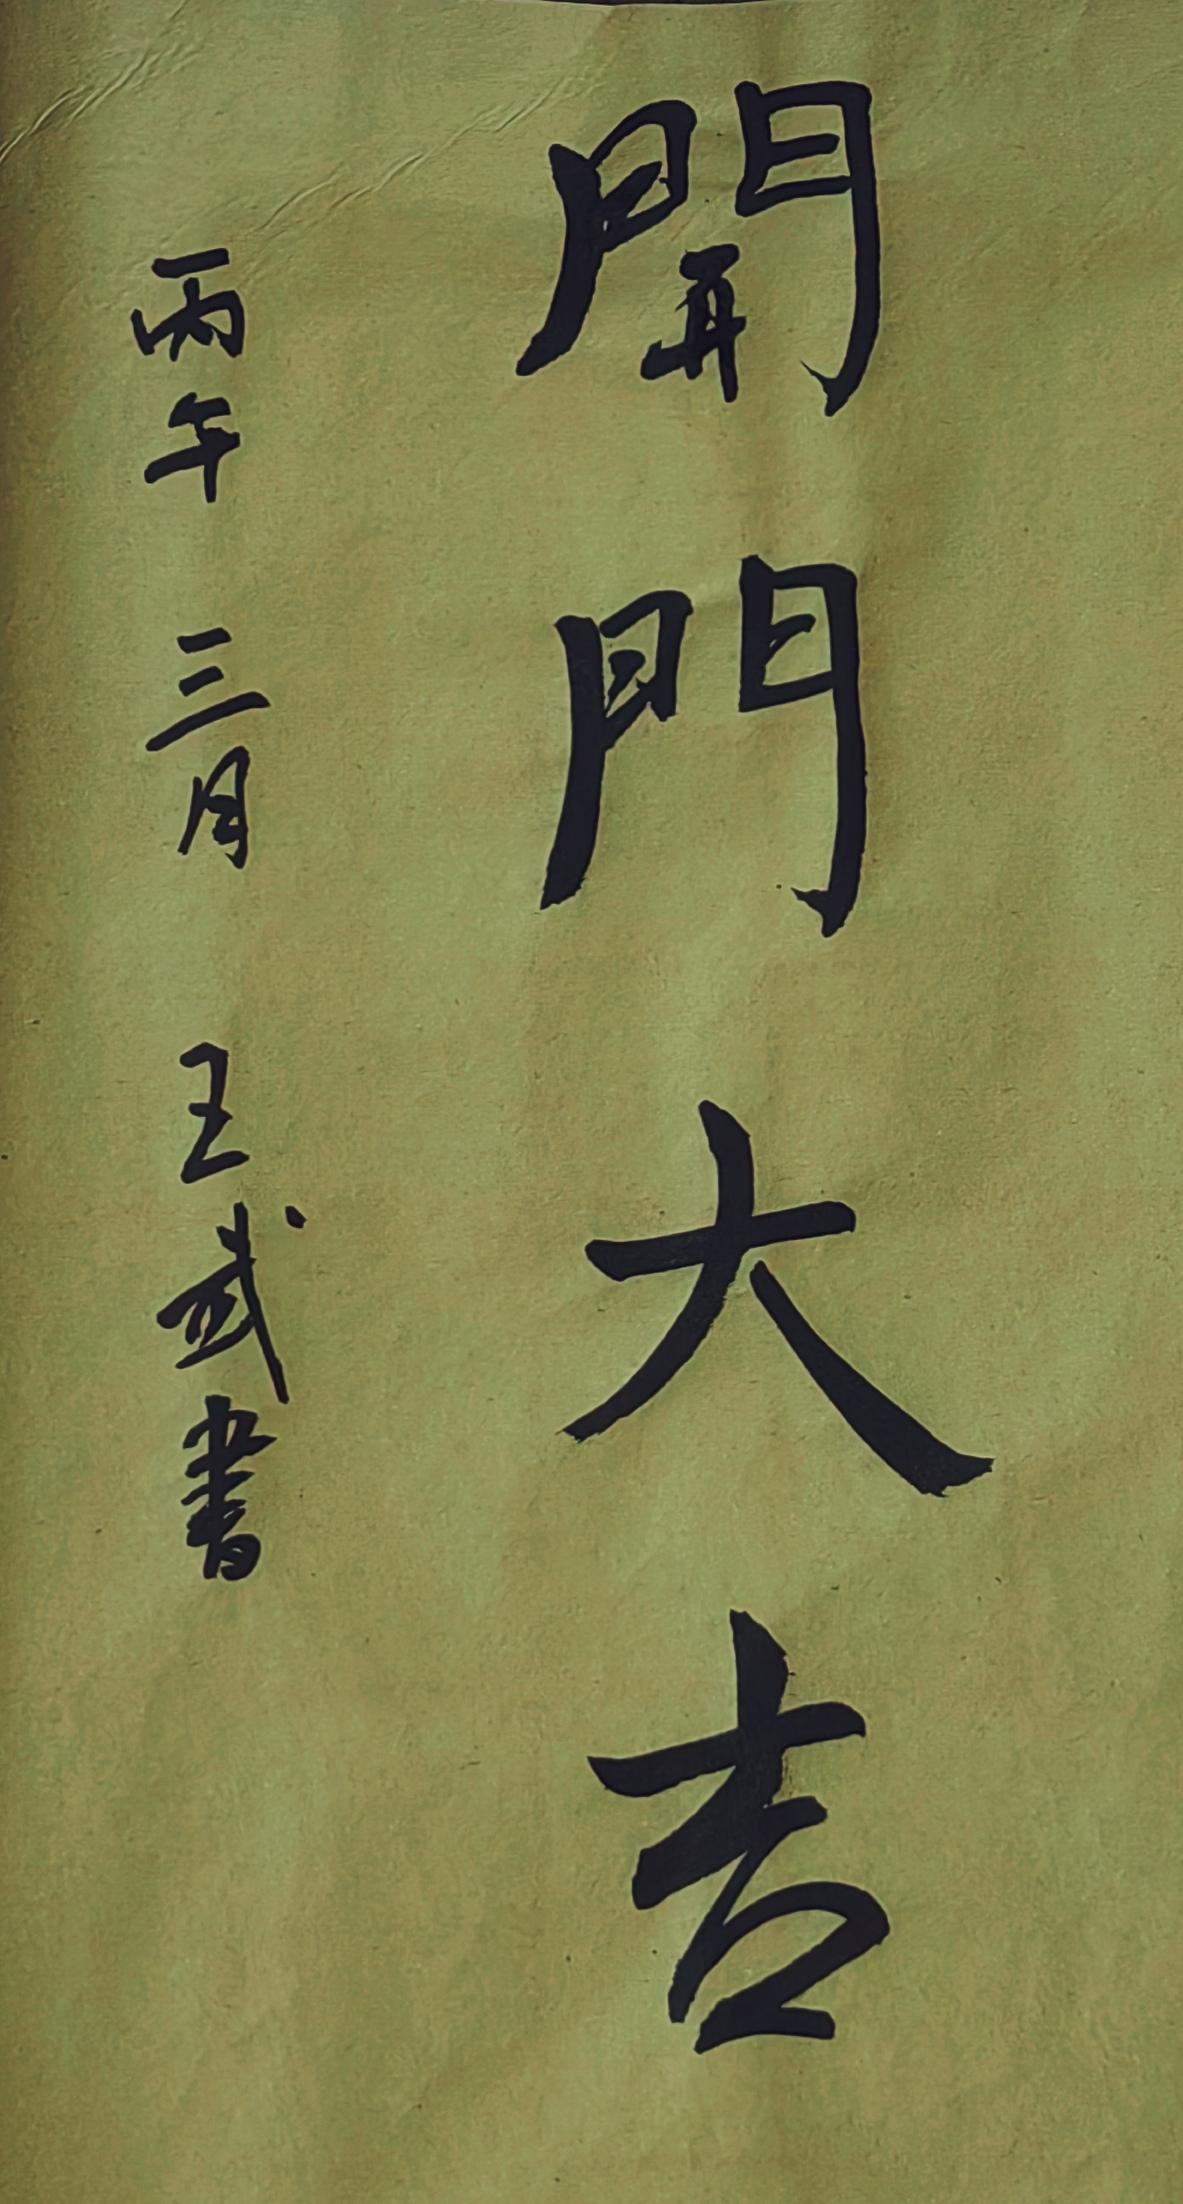 開門大吉
丙午 三月 王武書